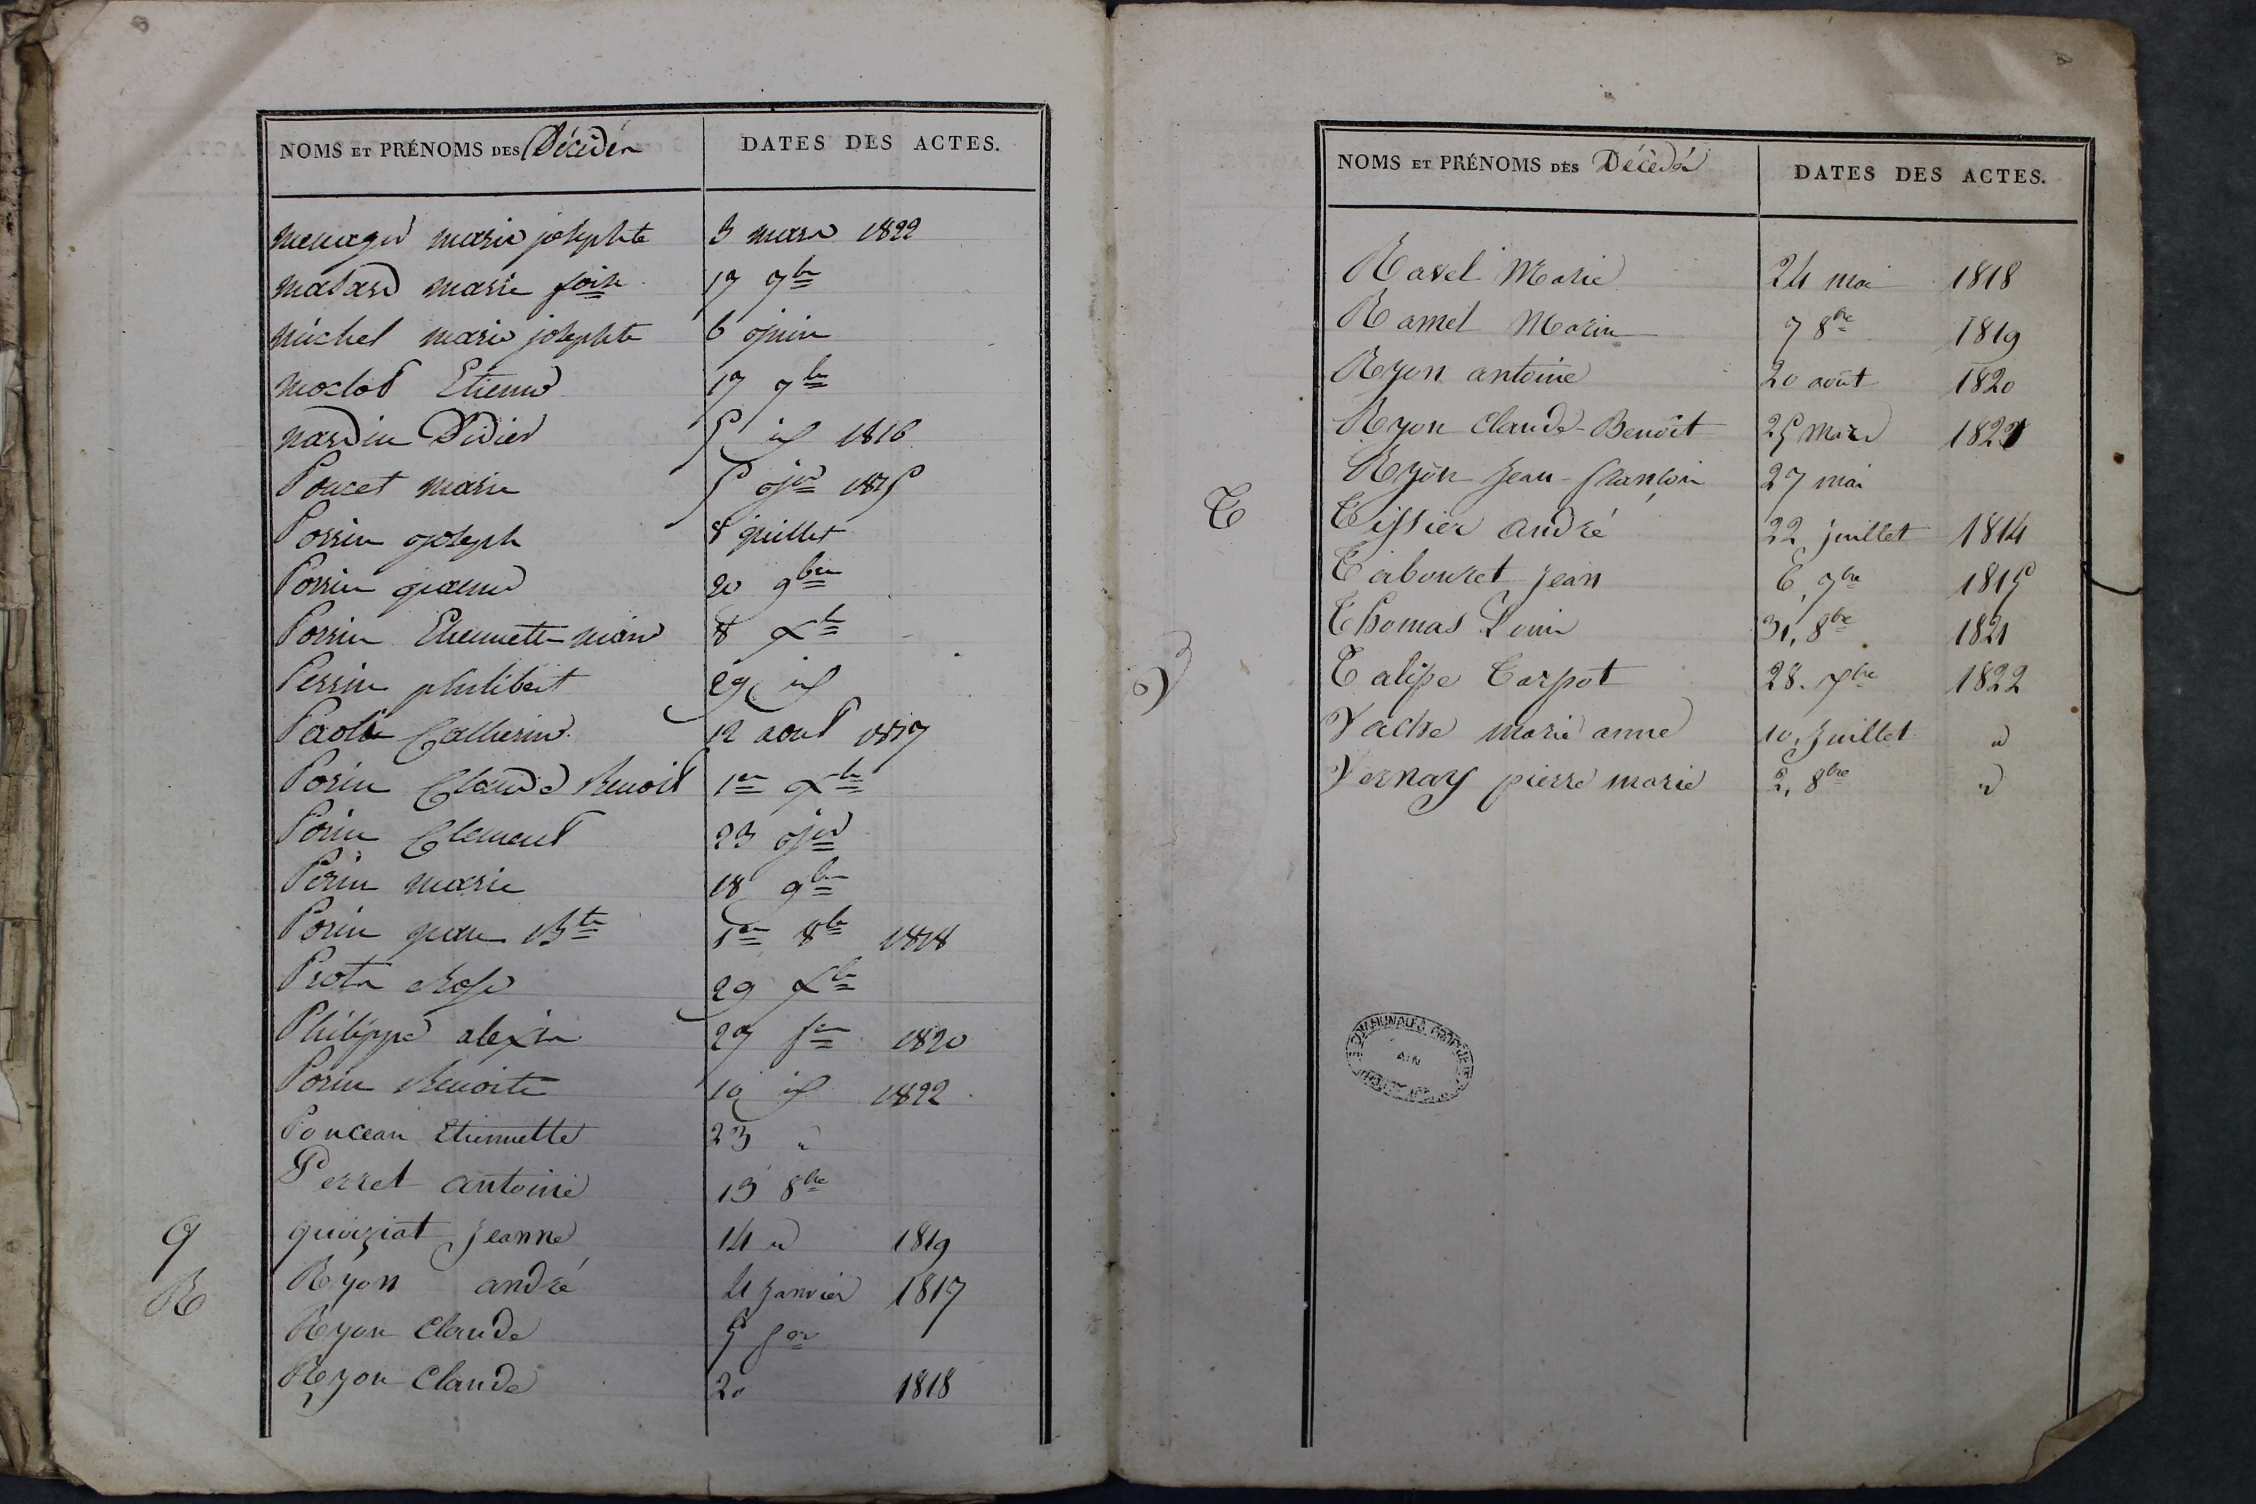 NOMS ET PRÉNOMS DES Décédés
DATES DES ACTES.
menager marie josephte 3 mars 1822
matard marie 17 7bre
michel marie josephte 6 juin
moclot Etienne 17 7bre
nardin Didier 5 id 1816
Poncet marie 5 jer 1815
Perrin joseph 8 juillet
Perrin jeanne 20 9bre
Perrin Etiennette marie 8 Xbre
Perrin philibert 29 id
Catherine 12 aout 1817
Perin Claude Benoit 1er Xbre
Perin Clement 23 jer
Perin marie 18 9bre
Perin jean Bte 1er 8bre 1818
Prota Rose 29 Xbre
Philippe alexis 27 fer 1820
Perin Benoite 10 id 1822
Ponceau Etiennette 23 "
Perret antoine 13 8bre
Q quoiziat Jeanne 14 " 1819
R Reyon andré 4 Janvier 1817
Reyon Claude 5 fer
Reyon Claude 20 1818
NOMS ET PRÉNOMS DES Décédés
DATES DES ACTES.
Ravel Marie 24 mai 1818
Ramel Marie 7 8bre 1819
Reyon antoine 20 août 1820
Reyon Claude-Benoît 25 Mars 1821
Reyon Jean-françois 27 mai
T Tissier andré 22 juillet 1814
Tabouret Jean 6, 7bre 1815
Thomas Louis 31, 8bre 1821
V Talipe Carpot 28. 7bre 1822
Vache marie anne 10, Juillet "
Vernay pierre marie 2, 8bre "
AIN